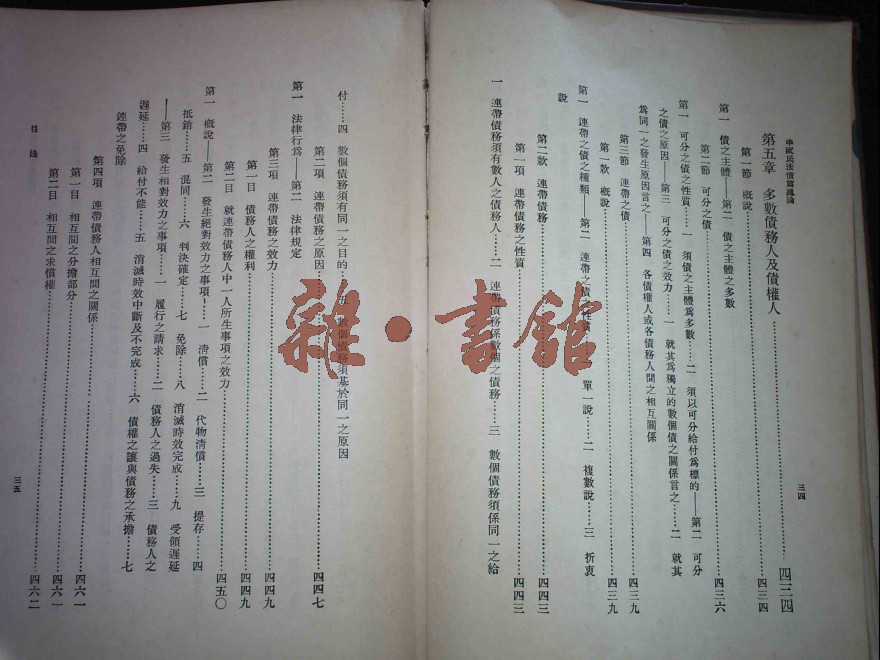 中國民法債篇總論
三四
第五章 多數債務人及債權人……四三四
第一節 概說……四三四
第一 債之主體——第二 債之主體之多數
第二節 可分之債……四三六
第一 可分之債之性質……一 須債之主體爲多數……二 須以可分給付爲標的——第二 可分
之債之原因——第三 可分之債之效力……一 就其爲獨立的數個債之關係言之……二 就其
爲同一之發生原因言之——第四 各債權人或各債務人間之相互關係
第三節 連帶之債……四三九
第一款 概說……四三九
第一 連帶之債之種類——第二 連帶之債之性質……一 單一說……二 複數說……三 折衷
說
第二款 連帶債務……四四三
第一項 連帶債務之性質……四四三
一 連帶債務須有數人之債務人……二 連帶債務係數個之債務……三 數個債務須係同一之給
付……四 數個債務須有同一之目的……五 數個債務須基於同一之原因
第二項 連帶債務之原因……四四七
第一 法律行爲——第二 法律規定
第三項 連帶債務之效力……四四九
第一目 債務人之權利……四四九
第二目 就連帶債務人中一人所生事項之效力……四五〇
第一 概說——第二 發生絕對效力之事項……一 清償……二 代物清償……三 提存……四
抵銷……五 混同……六 判決確定……七 免除……八 消滅時效完成……九 受領遲延
——第三 發生相對效力之事項……一 履行之請求……二 債務人之過失……三 債務人之
遲延……四 給付不能……五 消滅時效中斷及不完成……六 債權之讓與債務之承擔……七
連帶之免除
第四項 連帶債務人相互間之關係……四六一
第一目 相互間之分擔部分……四六一
第二目 相互間之求償權……四六二
目錄
三五
雜·書館